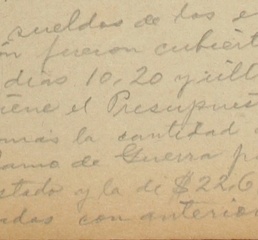 sueldos de los e
ón fueron cubiert
dias 10, 20 y últ
iene el Presupues
omás la cantidad
Ramo de Guerra p
stado y la de $22.6
adas con anterior